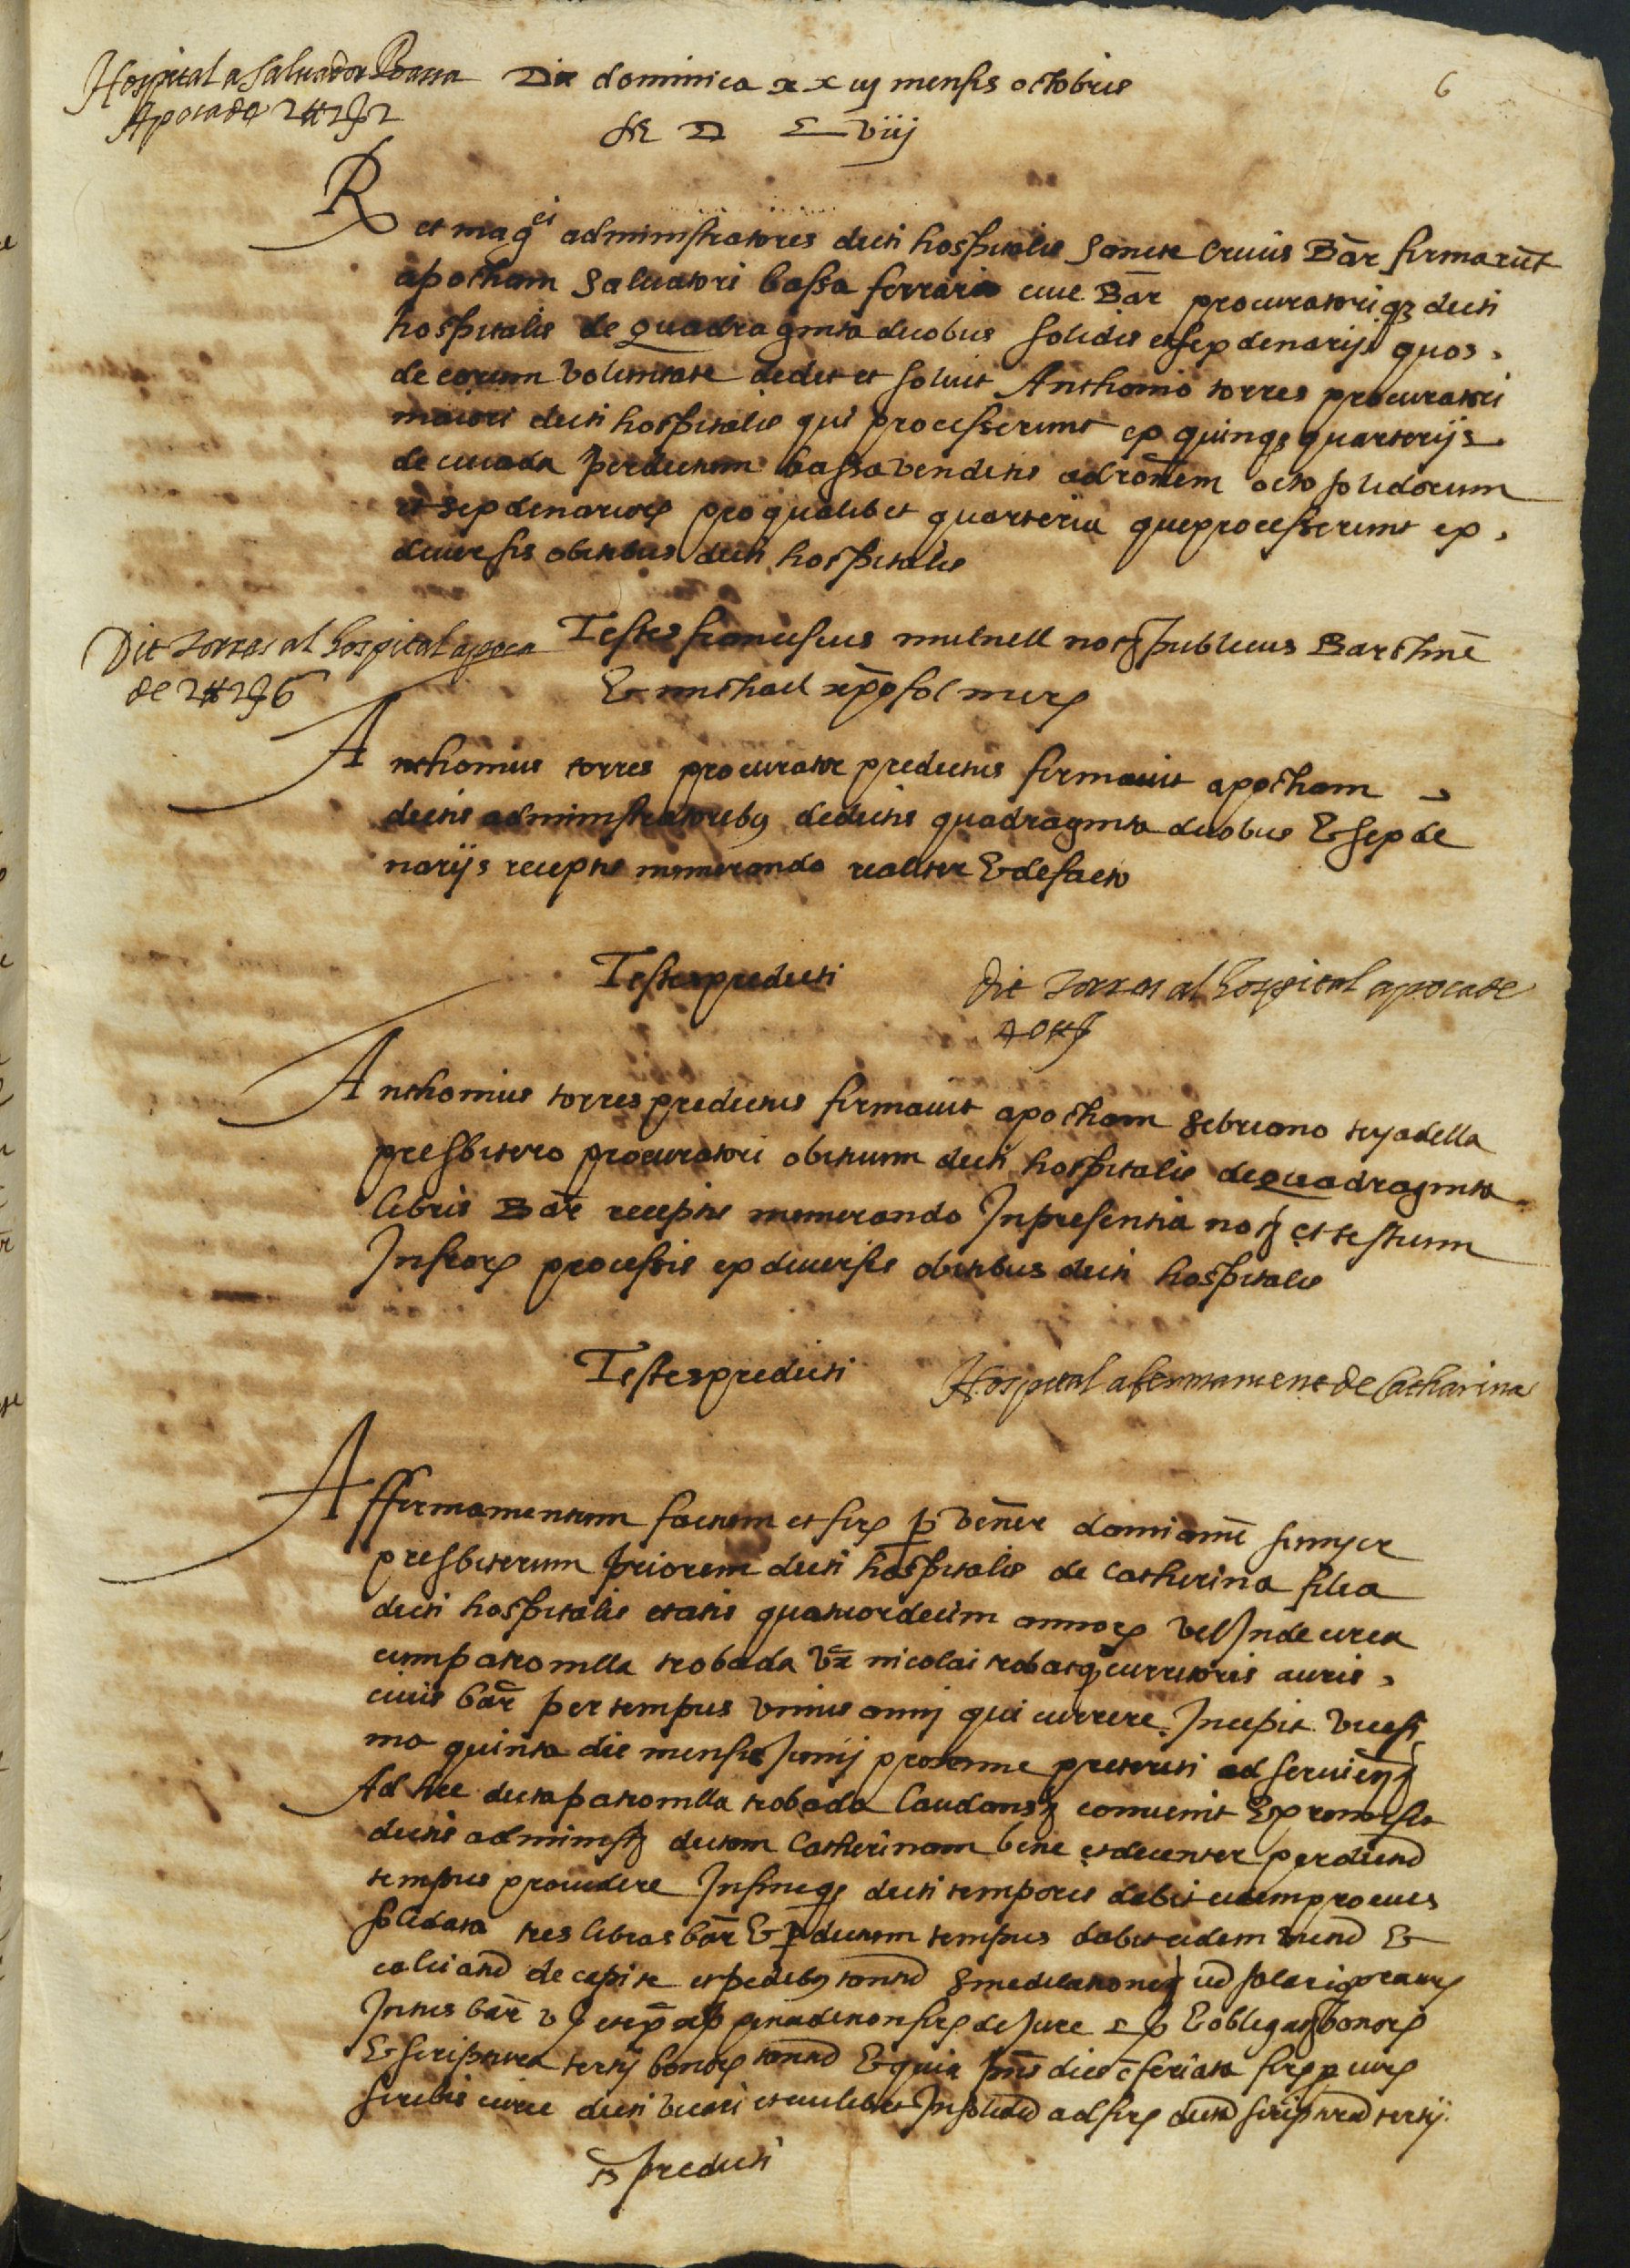 Hospital a Saluador Bassa
Apoca de 2 ₶ 2 ʃ 2
Die dominica xxiij mensis octobris
6
M D L viiij
R et mag^ci administratores dicti hospitalis Sancte Crucis Bar firmarūt
apocham Saluatori bassa ferrario ciue Bar procuratori qz dicti
hospitalis de quadraginta duobus solidis et sex denarijs quos
de eorum voluntate dedit et soluit Anthonio torres procuratori
maiori dicti hospitalis qui processerunt ex quinqz quarterijs
de ciuada per dictum bassa venditis ad rōnem octo solidorum
et sex denariorꝝ pro qualibet quarteria que processerunt ex
diuersis obitibus dicti hospitalis
Testes franciscus mulnell notz publicus Barchnē
& michael xp̄o fol merꝝ
Dit torres al hospital apoca
de 2 ₶ 2 ʃ 6
Anthonius torres procurator predictus firmauit apocham
dictis administratoribꝯ de dictis quadraginta duobus & sex de
narijs receptis numerando realiter & de facto
Testes predicti
Dit torres al hospital apoca de
40 ₶ ʃ
Anthonius torres predictus firmauit apocham sebriano teyadella
presbitero procuratori obituum dicti hospitalis de quadraginta
libris Bar receptis numerando In presentia notz et testium
Infrorꝝ processis ex diuersis obitibus dicti hospitalis
Testes predicti
Hospital afermament de Catharina
Affirmamentum factum et firꝝ p̱ vener damianū
presbiterum priorem dicti hospitalis de Catherina filia
dicti hospitalis etatis quatuordecim annorꝝ vel Inde circa
cum patronilla trobada vx̄ nicolai trobat qº curritoris auris
ciuis bar per tempus vnius annj qui currere Incepit vicesi
ma quinta die mensis Junij proxime preteriti ad seruiendz
Ad hec dicta patronilla trobada laudansz conuenit & promisit
dictis administz dictam Catherinam bene et decenter per dictud
tempus prouidere In fineqz dicti temporis dabit eidem pro eius
solidata tres libras bar & p̱ dictum tempus dabit eidem &
calciatud de capite et pedibꝯ tantud
Intus bar de Jure & obligatz bonorꝝ
& scriptura tertij bonorꝝ tantud & quia p̄ns dies ē feriata
scribis curie dicti vicari et cuilibet In solidud ad firꝝ dictā scripturā tertij
ts̄ predicti